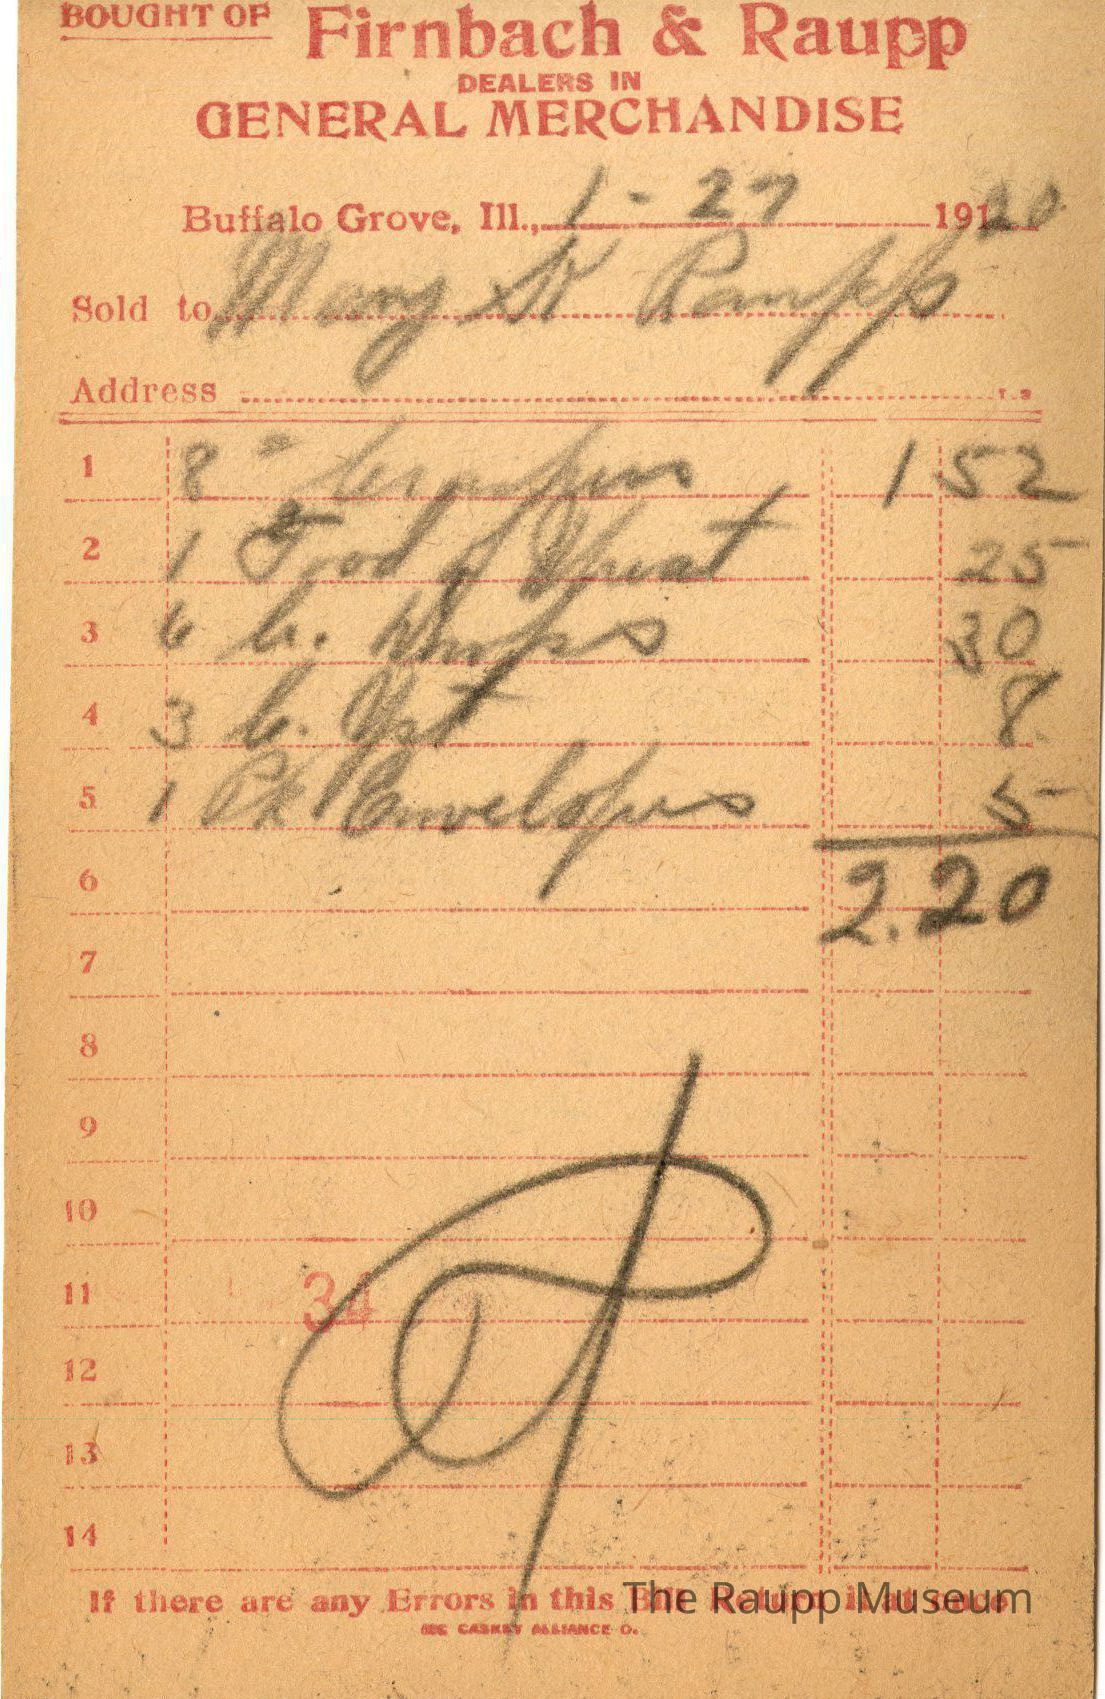 BOUGHT OF Firnbach & Raupp
DEALERS IN
GENERAL MERCHANDISE
Buffalo Grove, Ill., 1-27 1920
Sold to Mary K Raupp
Address
1 8 1 52
2 1 Food of Wheat 25
3 6 30
4 3 8
5 1 Pk Envelopes 5
6 2.20
7
8
9
10
11 34
12
13
14
If there are any Errors in this Bill Return it at once
The Raupp Museum